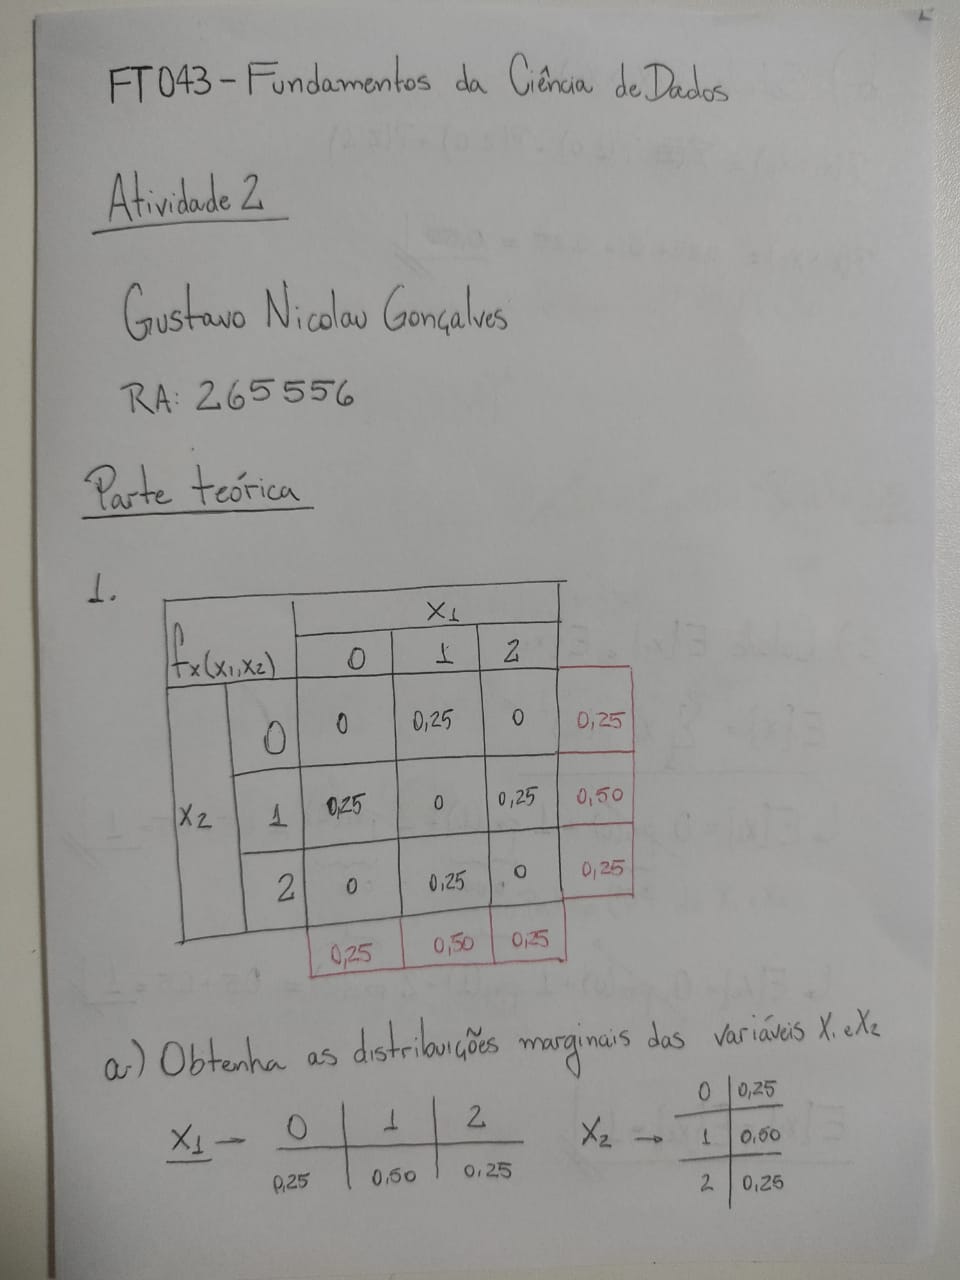 FT043 - Fundamentos da Ciência de Dados
Atividade 2
Gustavo Nicolau Gonçalves
RA: 265556
Parte teórica
1.
X1
fx(x1,x2) 0 1 2
0 0 0,25 0 0,25
X2 1 0,25 0 0,25 0,50
2 0 0,25 0 0,25
0,25 0,50 0,25
a) Obtenha as distribuições marginais das variáveis X1 e X2
X1 → 0 1 2
0,25 0,50 0,25
X2 → 0 0,25
1 0,50
2 0,25